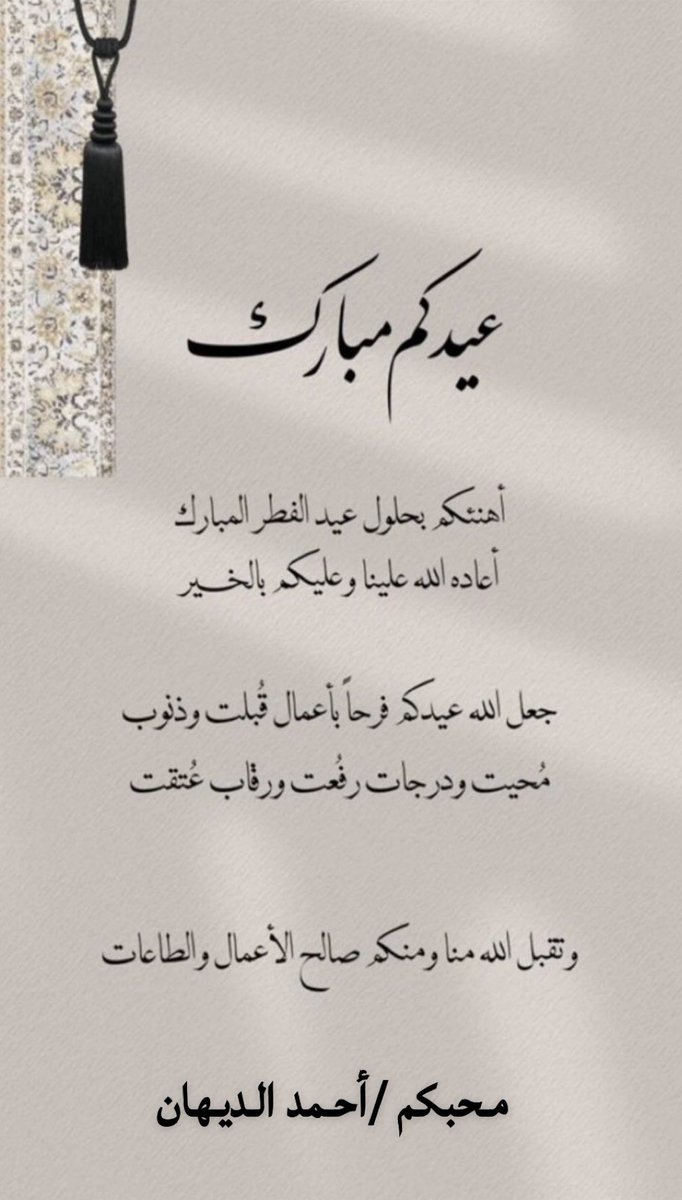 عيدكم مبارك
أهنئكم بحلول عيد الفطر المبارك
أعاده الله علينا وعليكم بالخير
جعل الله عيدكم فرحاً بأعمال قُبلت وذنوب
مُحيت ودرجات رفُعت ورقاب عُتقت
وتقبل الله منا ومنكم صالح الأعمال والطاعات
محبكم /أحمد الديهان